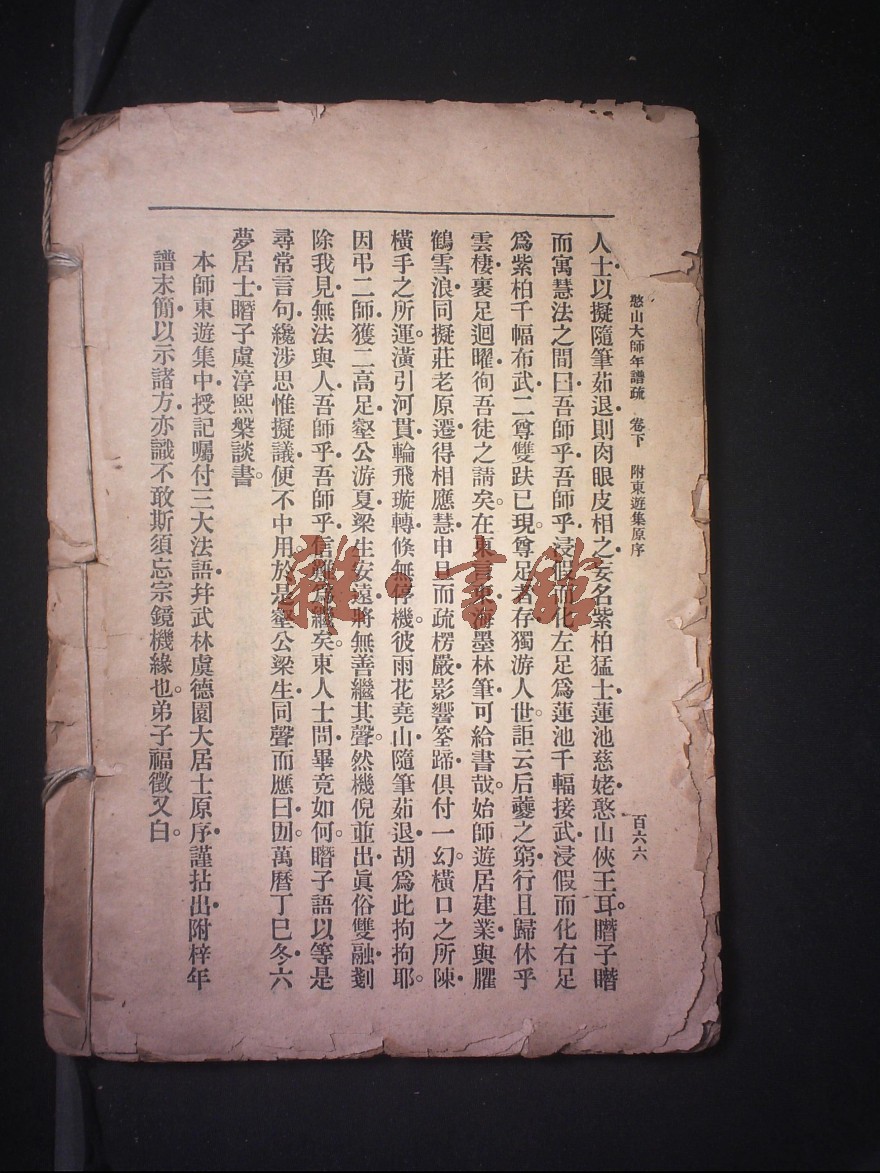 憨山大師年譜疏　卷下　附東遊集原序　百六六
人士以擬隨筆茹退則肉眼皮相之妄名紫柏猛士蓮池慈姥憨山俠王耳。㬱子㬱
而寓慧法之間曰吾師乎吾師乎浸假而化左足爲蓮池千輻接武浸假而化右足
爲紫柏千幅布武二尊雙趺已現。尊足者存獨游人世。詎云后夔之窮行且歸休乎
雲棲裹足迴曜徇吾徒之請矣。在東言東海墨林筆可給書哉。始師遊居建業與臞
鶴雪浪同擬莊老原遷得相應慧申旦而疏楞嚴影響筌蹄俱付一幻。橫口之所陳
橫手之所運。潢引河貫輪飛璇轉倏無停機。彼雨花堯山隨筆茹退胡爲此拘拘耶。
因弔二師獲二高足壑公游夏梁生安遠將無善繼其聲。然機倪並出眞俗雙融剗
除我見無法與人吾師乎吾師乎信難爲繼矣。東人士問畢竟如何。㬱子語以等是
尋常言句纔涉思惟擬議便不中用。於是壑公梁生同聲而應曰㘞。萬曆丁巳冬六
夢居士㬱子虞淳熙槃談書。
本師東遊集中授記囑付三大法語幷武林虞德園大居士原序謹拈出附梓年
譜末簡以示諸方亦識不敢斯須忘宗鏡機緣也。弟子福徵又白。
雜·書館